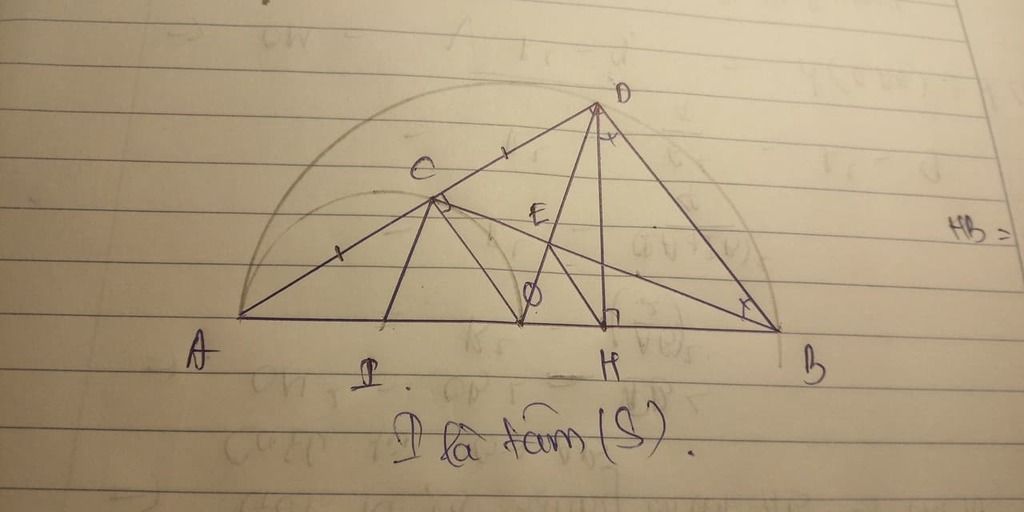 D
C
E
HB =
O
A
I
H
B
I là tâm (S).